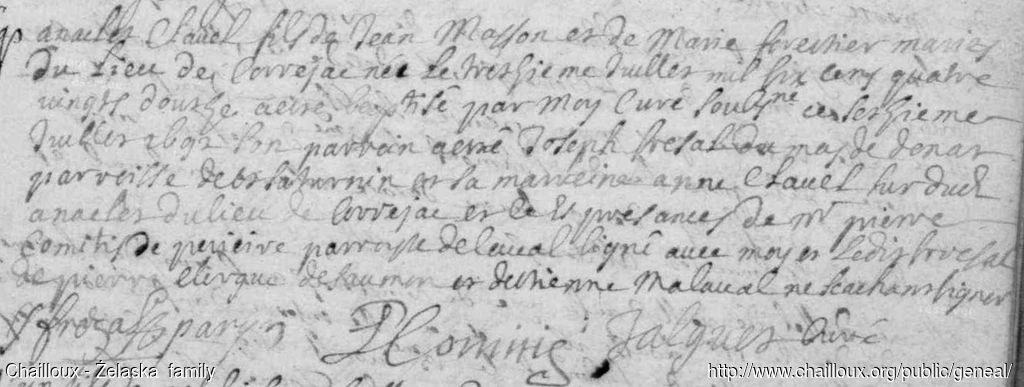 anaclet Clavel fils de Jean Masson et de Marie forestier maries
du Lieu de Correjac nee Le tretsieme Juillet mil six cens quatre
vingts doutse a este baptisé par moy Curé soubsne ce setsieme
Juillet 1692 son parrain a esté Joseph fresal du mas de donat
parroisse de st saturnin et sa marreine anne Clavel sur dud
anaclet du lieu de Correjac et Les presances de mr pierre
Comitis de parroisse de laval signé avec moy et Ledit fresal
de pierre Clergue de et destienne Malaval ne scachant signer
parrin PComitis Jalguet Curé
Chailloux - Żelaska family
http://www.chailloux.org/public/geneal/